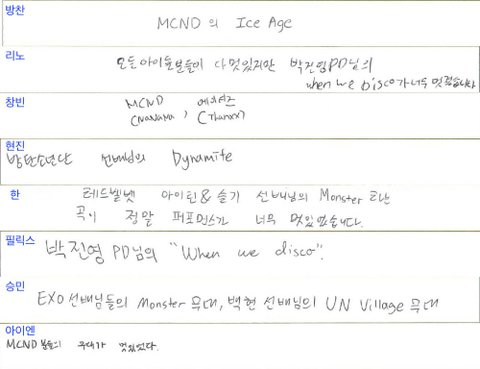 방찬
MCND의 Ice Age
리노
모든아이돌분들이 다멋있지만 박진영PD님의
when we Disco가너무 멋졌습니다
창빈
MCND 에이티즈
(nanana) , (Thanxx)
현진
방탄소년단 선배님의 Dynamite
한
레드벨벳 아이린& 슬기 선배님의 Monster 라는
곡이 정말 퍼포먼스가 너무 멋있었습니다.
필릭스
박진영 PD님의 "When we disco".
승민
EXO 선배님들의 Monster 무대, 백현 선배님의 UN Village 무대
아이엔
MCND 분들의 무대가 멋있었다.